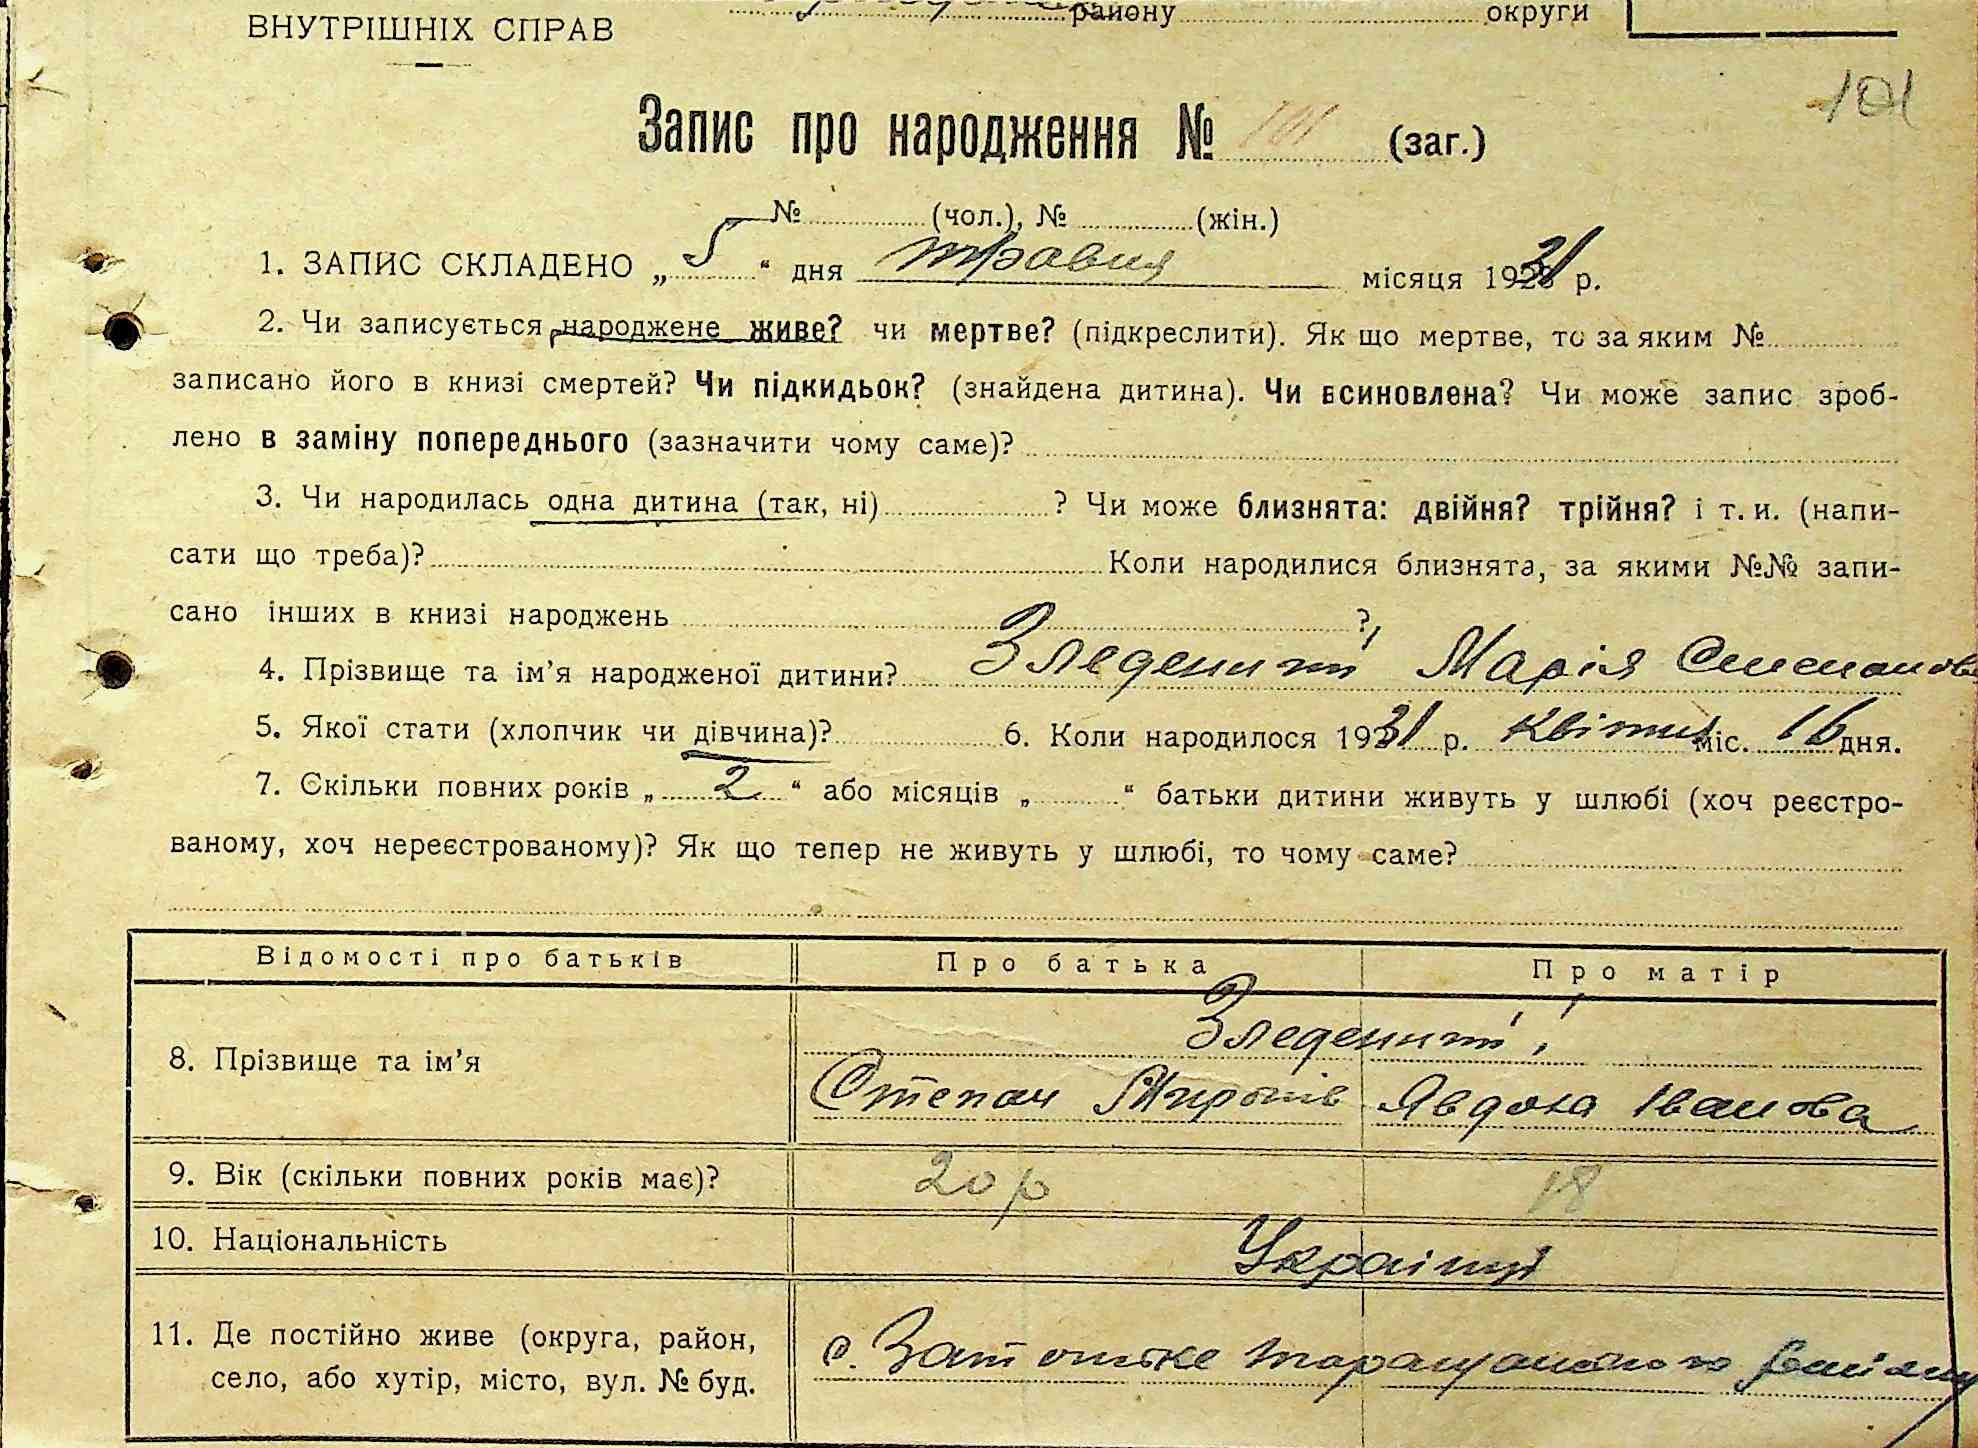 району округи
ВНУТРІШНІХ СПРАВ
101
Запис про народження № 101 (заг.)
№ (чол.), № (жін.)
1. ЗАПИС СКЛАДЕНО „ 5 “ дня травня місяця 1931 р.
2. Чи записується народжене живе? чи мертве? (підкреслити). Як що мертве, то за яким №
записано його в книзі смертей? Чи підкидьок? (знайдена дитина). Чи всиновлена? Чи може запис зроб-
лено в заміну попереднього (зазначити чому саме)?
3. Чи народилась одна дитина (так, ні) ? Чи може близнята: двійня? трійня? і т. и. (напи-
сати що треба)? Коли народилися близнята, за якими №№ запи-
сано інших в книзі народжень ?
4. Прізвище та ім’я народженої дитини? Марія Степанова
5. Якої стати (хлопчик чи дівчина)? 6. Коли народилося 1931 р. Квітня міс. 16 дня.
7. Скільки повних років „ 2 “ або місяців „ “ батьки дитини живуть у шлюбі (хоч реєстро-
ваному, хоч нереєстрованому)? Як що тепер не живуть у шлюбі, то чому саме?
Відомості про батьків Про батька Про матір
8. Прізвище та ім’я
Степан Миронів Явдоха Іванова
9. Вік (скільки повних років має)? 20 р 18
10. Національність Українці
11. Де постійно живе (округа, район,
село, або хутір, місто, вул. № буд. с.